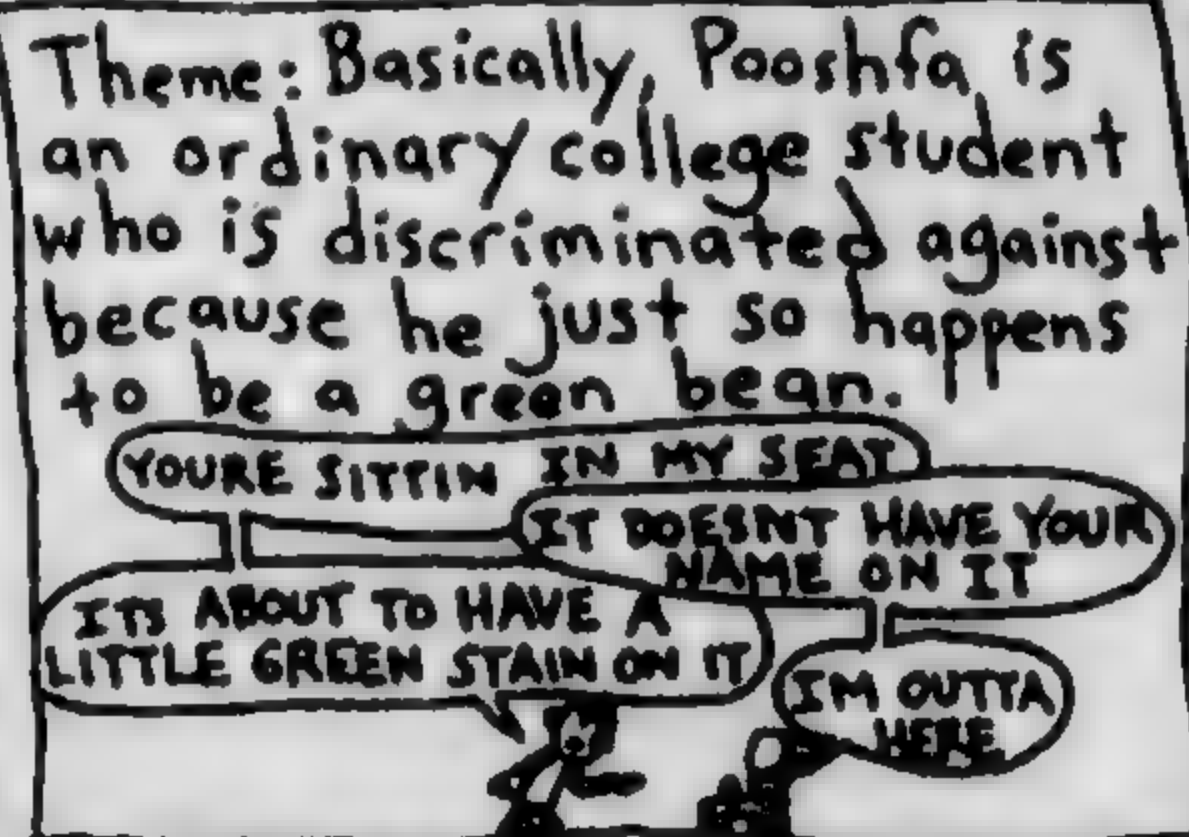 Theme: Basically, Pooshfa is
an ordinary college student
who is discriminated against
because he just so happens
to be a green bean.
YOURE SITTIN IN MY SEAT
IT DOESNT HAVE YOUR
NAME ON IT
ITS ABOUT TO HAVE A
LITTLE GREEN STAIN ON IT
IM OUTTA
HERE